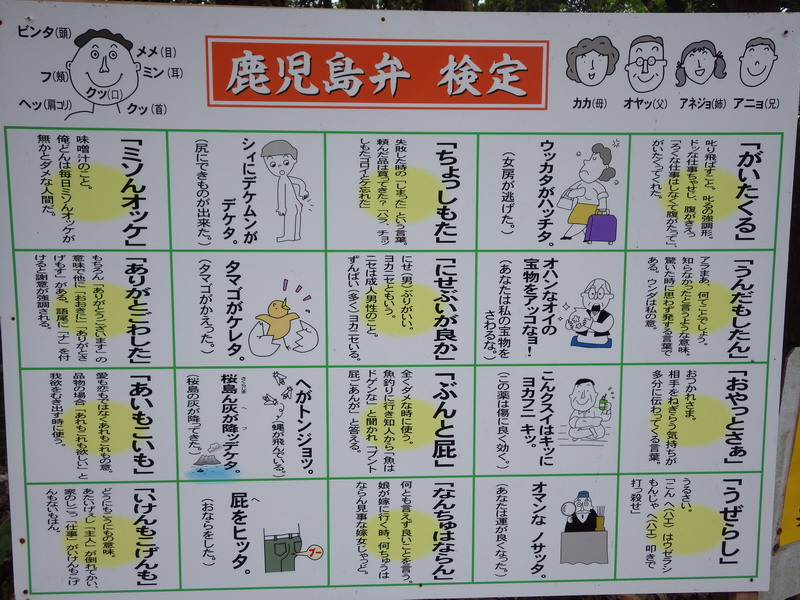 ビンタ(頭)
メメ(目)
フ(頬)
ミン(耳)
クッ(口)
ヘッ(肩コリ)
クッ(首)
鹿児島弁 検定
カカ(母)
オヤッ(父)
アネジョ(姉)
アニョ(兄)
「がいたくる」
叱り飛ばすこと。叱るの強調形。
ドシな仕事ちゃせじ、腹がきえっ
がいたくってくれた。
ウッカタがハッチタ。
(女房が逃げた。)
「ちょっしもた」
失敗した時の「しまった」という言葉。
頼んだ品は買ってきた?「ハラ、チョッ
シもたコロイとゎ忘れた」
シィにデケムンが
デケタ。
(尻にできものが出来た。)
「ミソんオッケ」
味噌汁のこと。
俺どんは毎日ミソんオッケが
無かとダメな人間だ。
「うんだもしたん」
アラまあ、何てことでしょう。
知らなかったと言うような意味。
驚いた時に思わず発する言葉で
ある。ウンダは私の意。
オハンなオイの
宝物をアッコなョ!
(あなたは私の宝物を
さわるな。)
「にせぶいが良か」
にせ(男)ぶりがいい。
ヨカニセともいう。
ニセは成人男性のこと。
ずんばい(多く)ヨカニセいる。
タマゴがケレタ。
(タマゴがかえった。)
「ありがとごわした」
もちろん「ありがとうございます」の
意味で他に「おおきに」「ありがとさ
げもす」がある。語尾に「ナ」を付
けると謝意が強調される。
「おやっとさぁ」
おつかれさま。
相手をねぎらう気持ちが
多分に伝わってくる言葉。
こんクスイはキッに
ヨカワニ キッ。
(この薬は傷に良く効く。)
「ぶんと屁」
全くダメな時に使う。
魚釣りに行き知人から「魚は
ドゲンな」と聞かれ「ブント
屁ごあんが」と答える。
へがトンジョッ。
(蝿が飛んでいる。)
桜島ん灰が降ッデケタ。
(桜島の灰が降ってきた。)
「あいもこいも」
愛も恋もではなくあれもこれもの意。
品物の場合「あれもこれも欲しい」と
我欲をむき出す時に使う。
「うぜらし」
うるさい。
「こん へ(ハエ)はウゼラシ
もんじゃ へ(ハエ) 叩きで
打っ殺せ」
オマンな ノサッタ。
(あなたは運が良くなった。)
「なんちゅはならん」
何とも言えず良いことを言う。
娘が嫁に行く時、何ちゅうは
ならん見事な嫁女じゃっど。
屁をヒッタ。
(おならをした。)
プー
「いけんもこげんも」
どうにもこうにもの意味。
あたいげぇし「主人」が倒れてかい、
家のしごっ「仕事」がいけんもこげ
んもないもはん。